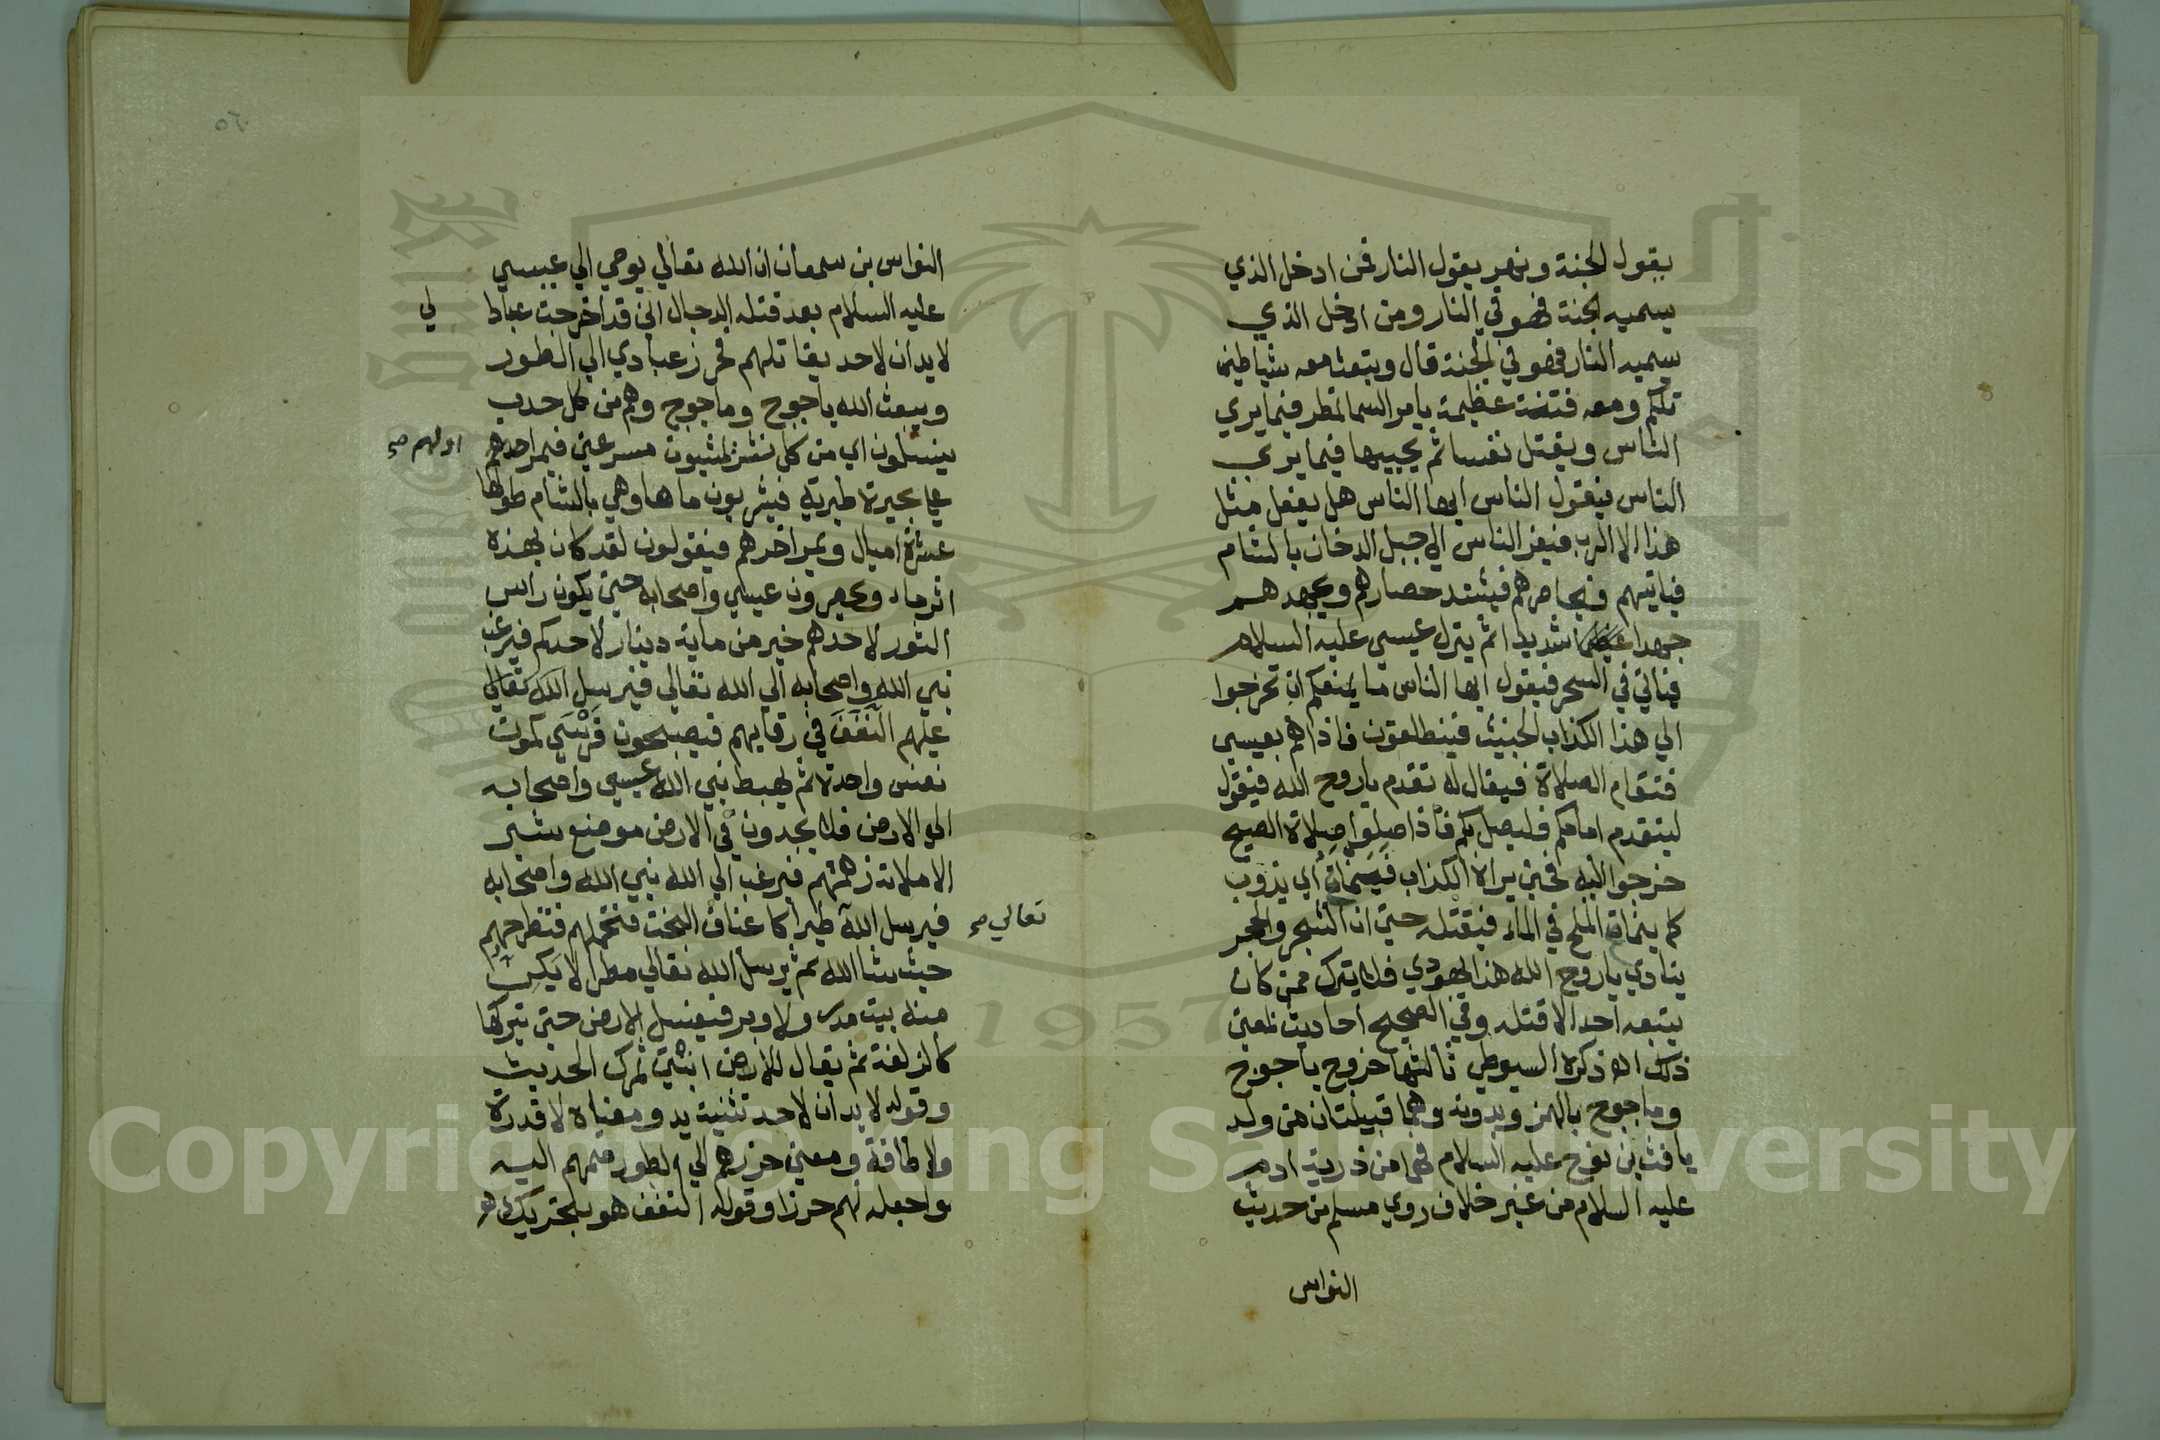 يقول الجنة ونهر يقول النار فمن ادخل الذي
يسميه الجنة فهو في النار ومن ادخل الذي
سميه النار فهو في الجنة قال ويبعث معه شياطين
تكلم ومعه فتنة عظيمة يامر السما تمطر فيما يري
الناس ويقتل نفسا ثم يحييها فيما يري
الناس فيقول الناس ايها الناس هل يفعل مثل
هذا الا الرب فيفر الناس الي جبل الدخان بالشام
فياتيهم فيحاصرهم فيشتد حصارهم ويجهدهم
جهدا شديدا ثم ينزل عيسي عليه السلام
فياتي في السحر فيقول ايها الناس ما يمنعكم ان تخرجوا
الي هذا الكذاب الخبيث فينطلقون فاذا هم بعيسي
فتقام الصلاة فيقال له تقدم ياروح الله فيقول
ليتقدم امامكم فليصل بكم فاذا صلوا صلاة الصبح
خرجوا اليه فحين يراه الكذاب فينماث أي يذوب
كما ينماث الملح في الماء فيقتله حتي ان الشجر والحجر
ينادي ياروح الله هذا اليهودي فلا يترك ممن كان
يتبعه احدا الا قتله وفي الصحيح احاديث بمعني
ذلك اه ذكره السيوطي ثالثها خروج ياجوج
وماجوج بالهمز وبدونه وهما قبيلتان من ولد
يافث بن نوح عليه السلام فهما من ذرية ادم
عليه السلام من غير خلاف روي مسلم من حديث
النواس
٥٦
النواس بن سمعان ان الله تعالي يوحي الي عيسي
عليه السلام بعد قتله الدجال اني قد اخرجت عبادا
لي
لا يدان لاحد بقتالهم فحرز عبادي الي الطور
ويبعث الله ياجوج وماجوج وهم من كل حدب
ينسلون اي من كل نشز يمشون مسرعين فيمر احدهم
اولهم صح
علي بحيرة طبرية فيشربون ماها وهي بالشام طولها
عشرة اميال ويمر اخرهم فيقولون لقد كان بهذه
اثر ماء ويحصرون عيسي واصحابه حتي يكون راس
الثور لاحدهم خير من ماية دينار لاحدكم فيرغب
نبي الله واصحابه الي الله تعالي فيرسل الله تعالي
عليهم النَّغَفَ في رقابهم فيصبحون فَرْسَي كموت
نفس واحدة ثم يهبط نبي الله عيسي واصحابه
الي الارض فلا يجدون في الارض موضع شبر
الا ملاته زهمتهم فيرغب الي الله نبي الله واصحابه
فيرسل الله طيرا كاعناق البخت فتحملهم فتطرحهم
تعالي صح
حيث شا الله ثم يرسل الله تعالي مطرا لا يَكِنُّ
منه بيت مدر ولا وبر فيغسل الارض حتي يتركها
كالزلفة ثم يقال للارض انبتي ثمرك الحديث
وقوله لا يدان لاحد تثنية يد ومعناه لا قدرة
ولا طاقة ومعني حرزهم الي الطور ضمهم اليه
واجعله لهم حرزا وقوله النغف هو بالتحريك